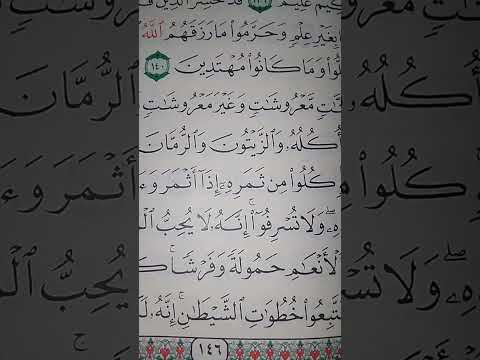 كِيمٌ عَلِيمٌ قَدْ خَسِرَ ٱلَّذِينَ قَ
بِغَيْرِ عِلْمٍ وَحَرَّمُوا۟ مَا رَزَقَهُمُ ٱللَّهُ
لُّوا۟ وَمَا كَانُوا۟ مُهْتَدِينَ ١٤٠
ـَّٰتٍ مَّعْرُوشَٰتٍ وَغَيْرَ مَعْرُوشَٰتٍ
أُكُلُهُۥ وَٱلزَّيْتُونَ وَٱلرُّمَّانَ
كُلُوا۟ مِن ثَمَرِهِۦٓ إِذَآ أَثْمَرَ وَءَ
هِۦۖ وَلَا تُسْرِفُوٓا۟ۚ إِنَّهُۥ لَا يُحِبُّ ٱلْ
ٱلْأَنْعَٰمِ حَمُولَةً وَفَرْشًاۚ كُ
تَتَّبِعُوا۟ خُطُوَٰتِ ٱلشَّيْطَٰنِۚ إِنَّهُۥ لَ
١٤٦